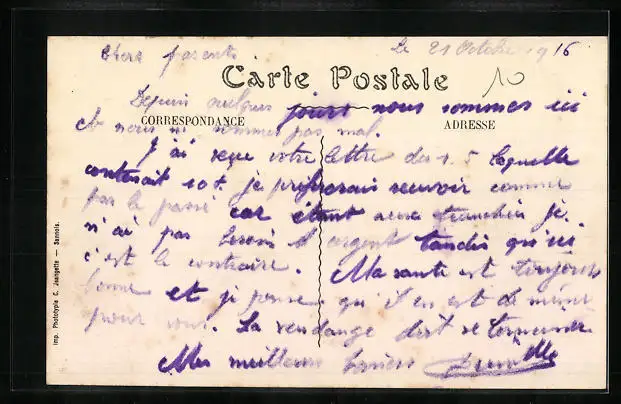 Chers parents Le 21 Octobre 1916
Carte Postale
10
Depuis quelques jours nous sommes ici
CORRESPONDANCE
ADRESSE
et nous n'y sommes pas mal.
J'ai reçu votre lettre du 15 laquelle
contenait 10 f. je préfèrerais recevoir comme
par le passé car étant aux tranchées je
n'ai pas besoin d'argent tandis qu'ici
c'est le contraire. Ma santé est toujours
bonne et je pense qu'il en est de même
pour vous. La vendange doit se terminer
Mes meilleurs baisers
Imp. Phototypie C. Jeangette — Sannois.